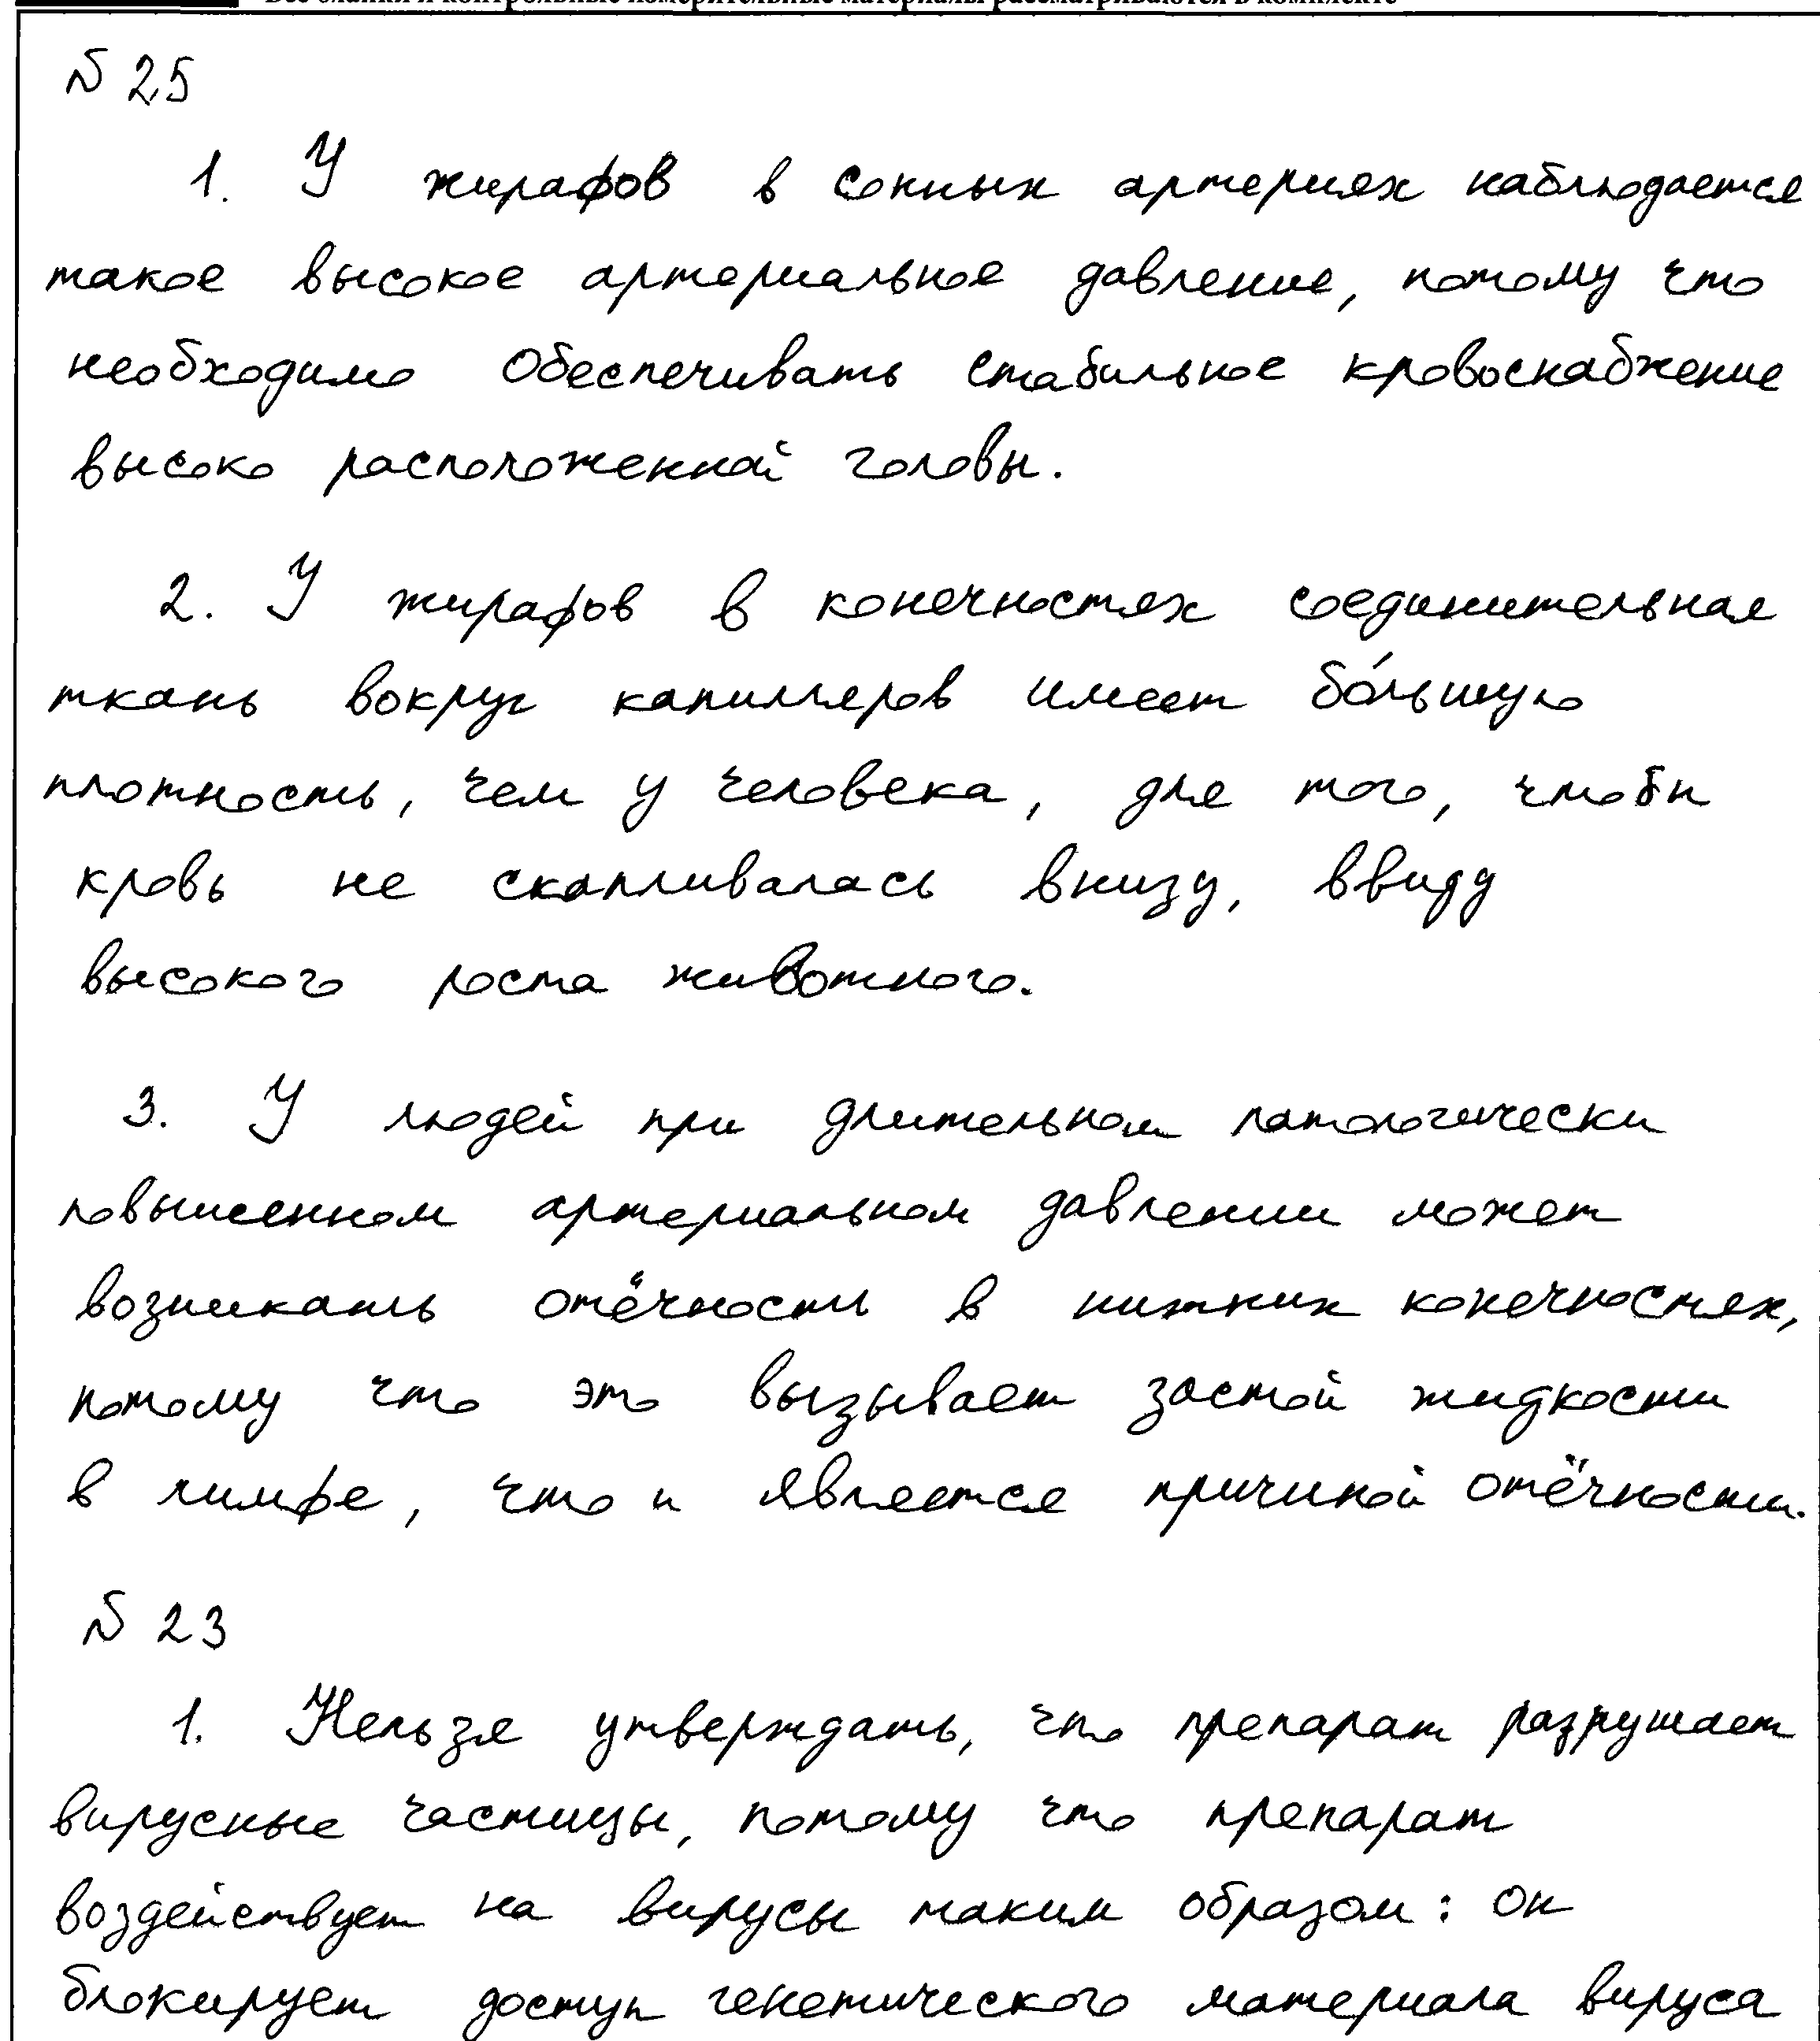 Все бланки и контрольные измерительные материалы рассматриваются в комплекте
№ 25
1. У жирафов в сонных артериях наблюдается
такое высокое артериальное давление, потому что
необходимо обеспечивать стабильное кровоснабжение
высоко расположенной головы.
2. У жирафов в конечностях соединительная
ткань вокруг капилляров имеет бо́льшую
плотность, чем у человека, для того, чтобы
кровь не скапливалась внизу, ввиду
высокого роста животного.
3. У людей при длительном патологически
повышенном артериальном давлении может
возникать отёчность в нижних конечностях,
потому что это вызывает застой жидкости
в лимфе, что и является причиной отёчности.
№ 23
1. Нельзя утверждать, что препарат разрушает
вирусные частицы, потому что препарат
воздействует на вирусы таким образом: он
блокирует доступ генетического материала вируса